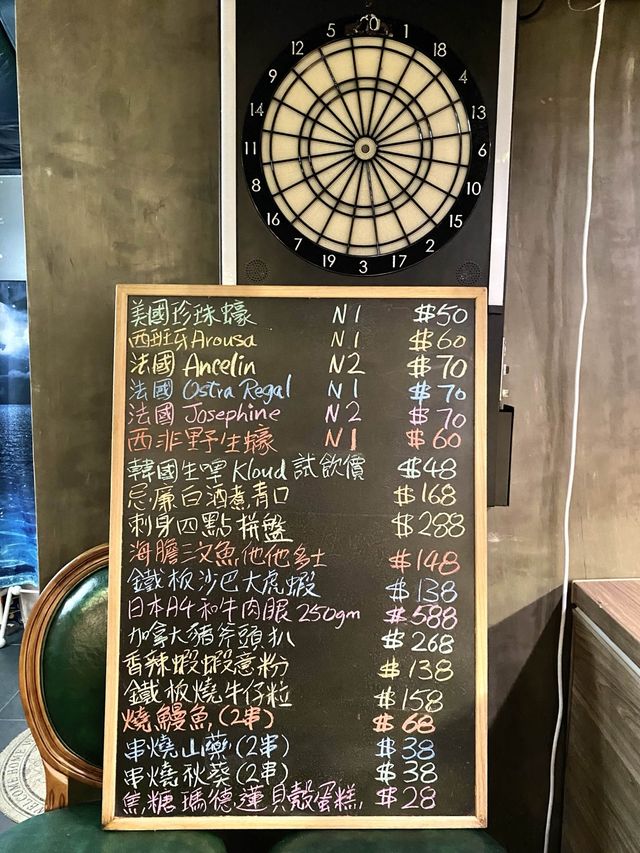 20 1 18 4 13 6 10 15 2 17 3 19 7 16 8 11 14 9 12 5
美國珍珠蠔 N1 $50
西班牙Arousa N1 $60
法國 Ancelin N2 $70
法國 Ostra Regal N1 $70
法國 Josephine N2 $70
西非野生蠔 N1 $60
韓國生啤 Kloud 試飲價 $48
忌廉白酒煮青口 $168
刺身四點拼盤 $288
海膽三文魚他他多士 $148
鐵板沙巴大虎蝦 $138
日本A4和牛肉眼250gm $588
加拿大豬斧頭扒 $268
香辣蝦蝦意粉 $138
鐵板燒牛仔粒 $158
燒鰻魚(2串) $68
串燒山藥(2串) $38
串燒秋葵(2串) $38
焦糖瑪德蓮貝殼蛋糕 $28